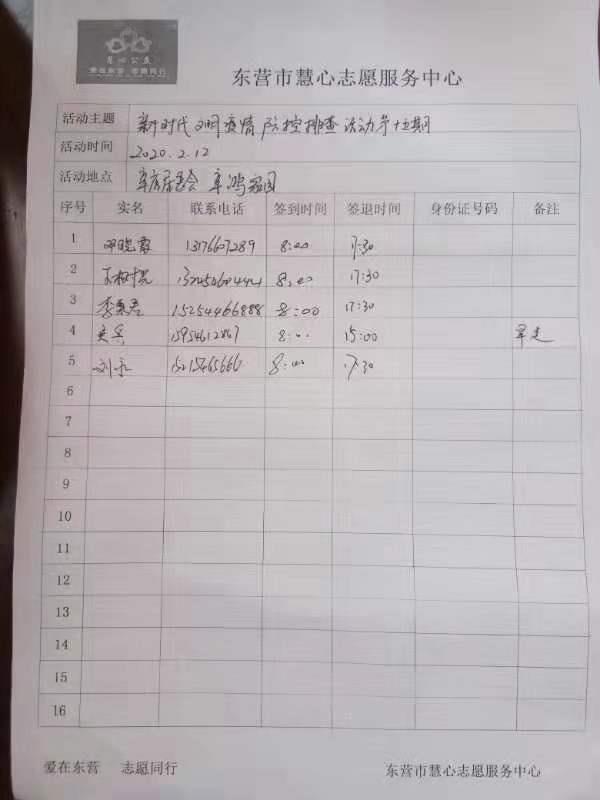 慧心公益
爱在东营 志愿同行
东营市慧心志愿服务中心
活动主题 新时代文明疫情防控排查活动第十五期
活动时间 2020.2.12
活动地点 辛店居委会 辛鸿家园
序号 实名 联系电话 签到时间 签退时间 身份证号码 备注
1 邓晓霞 13176607289 8:00 17:30
2 8:00 17:30
3 15254466888 8:00 17:30
4 8:00 15:00 早走
5 刘永 8:00 17:30
6
7
8
9
10
11
12
13
14
15
16
爱在东营 志愿同行 东营市慧心志愿服务中心